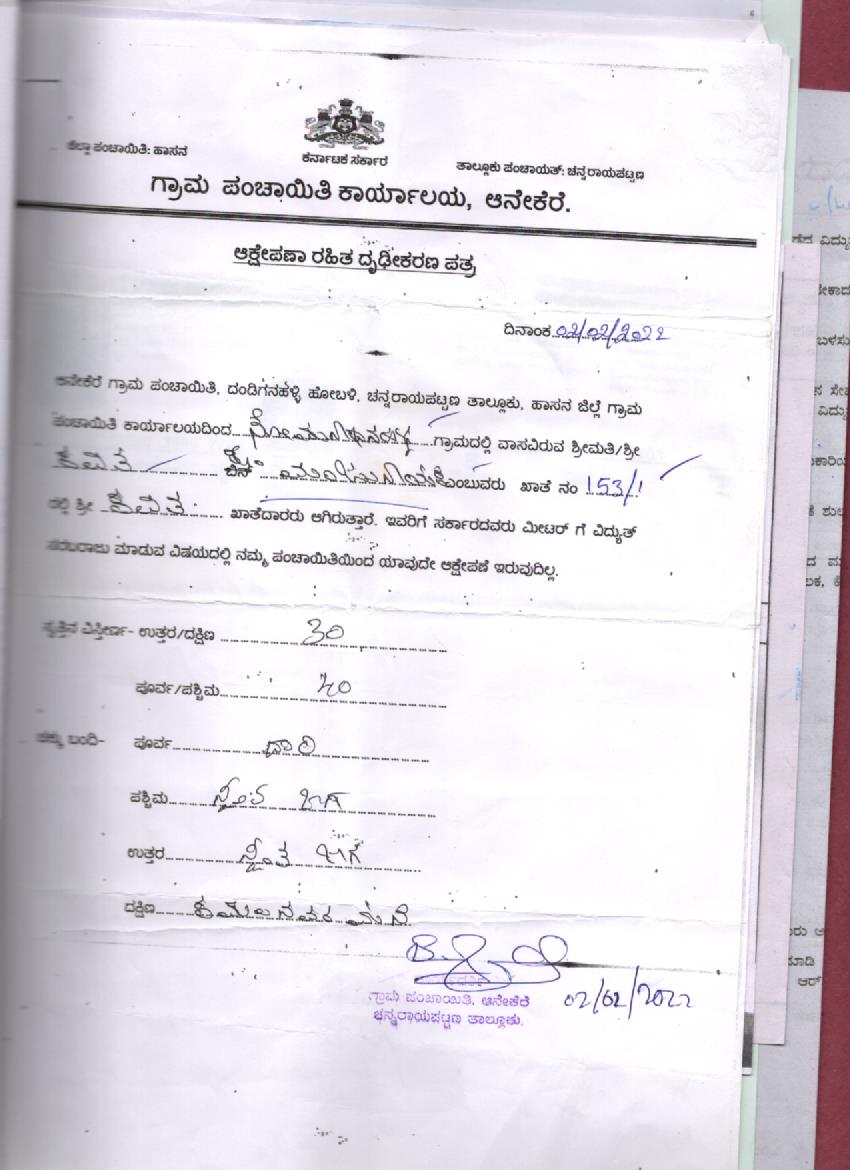 ಜಿಲ್ಲಾ ಪಂಚಾಯಿತಿ: ಹಾಸನ
ಕರ್ನಾಟಕ ಸರ್ಕಾರ
ತಾಲ್ಲೂಕು ಪಂಚಾಯತ್: ಚನ್ನರಾಯಪಟ್ಟಣ
ಗ್ರಾಮ ಪಂಚಾಯಿತಿ ಕಾರ್ಯಾಲಯ, ಆನೇಕೆರೆ.
ಆಕ್ಷೇಪಣಾ ರಹಿತ ದೃಢೀಕರಣ ಪತ್ರ
ದಿನಾಂಕ 02/02/2022
ಆನೇಕೆರೆ ಗ್ರಾಮ ಪಂಚಾಯಿತಿ, ದಂಡಿಗನಹಳ್ಳಿ ಹೋಬಳಿ, ಚನ್ನರಾಯಪಟ್ಟಣ ತಾಲ್ಲೂಕು, ಹಾಸನ ಜಿಲ್ಲೆ ಗ್ರಾಮ
ಪಂಚಾಯಿತಿ ಕಾರ್ಯಾಲಯದಿಂದ ಗ್ರಾಮದಲ್ಲಿ ವಾಸವಿರುವ ಶ್ರೀಮತಿ/ಶ್ರೀ
ಕವಿತ ಎಂಬುವರು ಖಾತೆ ನಂ 153/1
ರಲ್ಲಿ ಶ್ರೀ ಕವಿತ ಖಾತೆದಾರರು ಆಗಿರುತ್ತಾರೆ. ಇವರಿಗೆ ಸರ್ಕಾರದವರು ಮೀಟರ್ ಗೆ ವಿದ್ಯುತ್
ಸರಬರಾಜು ಮಾಡುವ ವಿಷಯದಲ್ಲಿ ನಮ್ಮ ಪಂಚಾಯಿತಿಯಿಂದ ಯಾವುದೇ ಆಕ್ಷೇಪಣೆ ಇರುವುದಿಲ್ಲ.
ಸ್ವತ್ತಿನ ವಿಸ್ತೀರ್ಣ- ಉತ್ತರ/ದಕ್ಷಿಣ 30
ಪೂರ್ವ/ಪಶ್ಚಿಮ 40
ಚಕ್ಕು ಬಂದಿ- ಪೂರ್ವ ದಾರಿ
ಪಶ್ಚಿಮ ಸ್ವಂತ ಜಾಗ
ಉತ್ತರ ಸ್ವಂತ ಜಾಗ
ದಕ್ಷಿಣ ಕಮಲನವರ ಮನೆ
ಗ್ರಾಮ ಪಂಚಾಯಿತಿ, ಆನೇಕೆರೆ
ಚನ್ನರಾಯಪಟ್ಟಣ ತಾಲ್ಲೂಕು.
02/02/2022